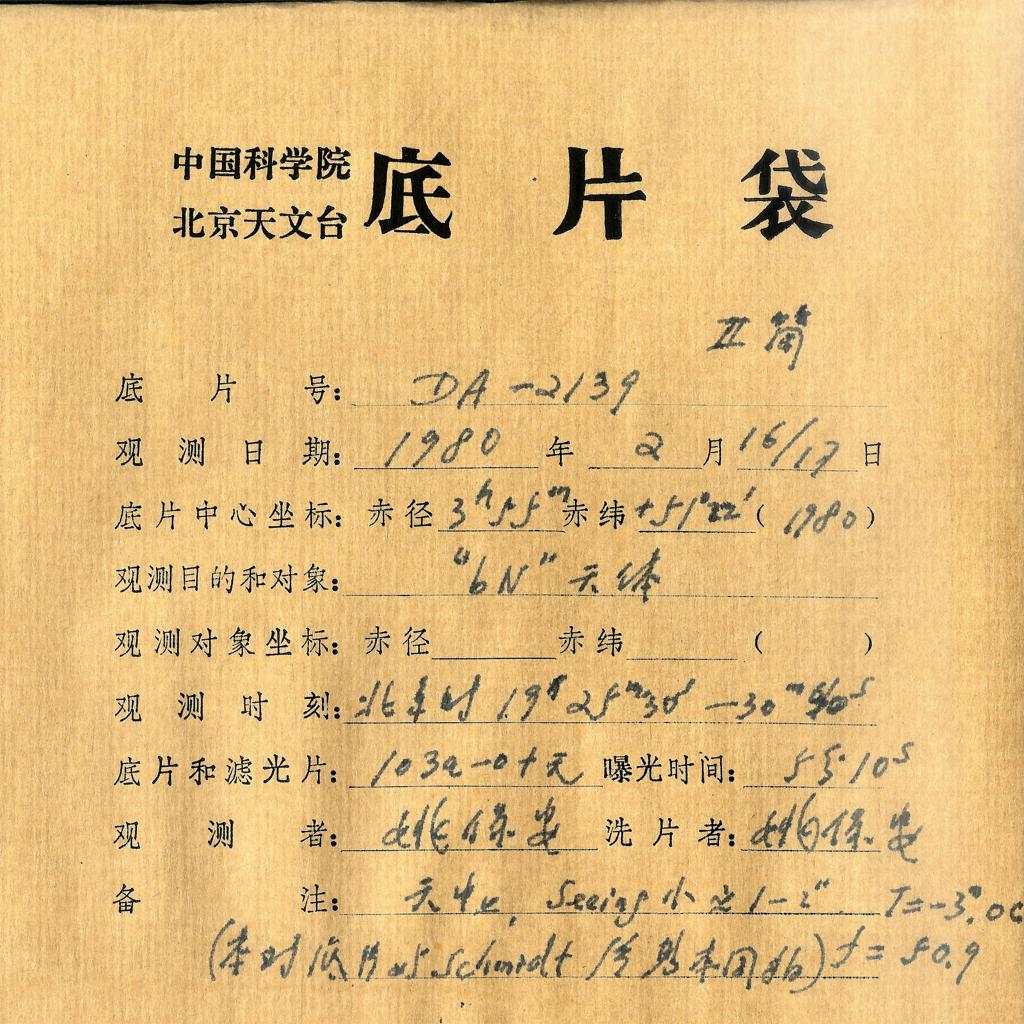 中国科学院
北京天文台
底片袋
II 筒
底片号: DA-2139
观测日期: 1980 年 2 月 16/17 日
底片中心坐标: 赤径 3h55m 赤纬 +51°22' (1980)
观测目的和对象: "bN" 天体
观测对象坐标: 赤径 赤纬 ( )
观测时刻: 北京时 19h 25m30s -30m
底片和滤光片: 103a-0+无 曝光时间: 5s 10s
观测者: 姚保安 洗片者: 姚保安
备注: 天中, Seeing 小 1-2" T=-3°.0C
(本对底片 Schmidt ) f=50.9